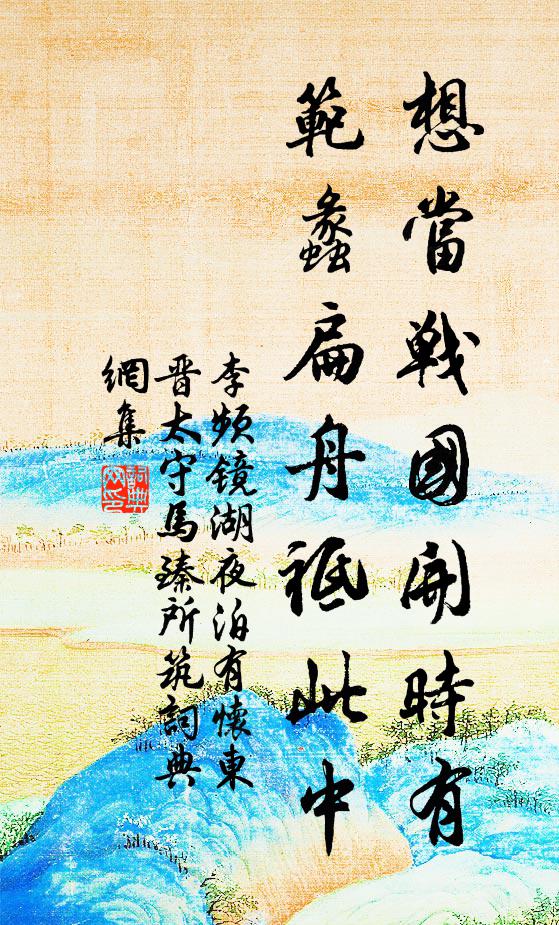 想當戰國開時有
範蠡扁舟祗此中
李頻鏡湖夜泊有懷東
晋太守馬臻所筑詞典
網集